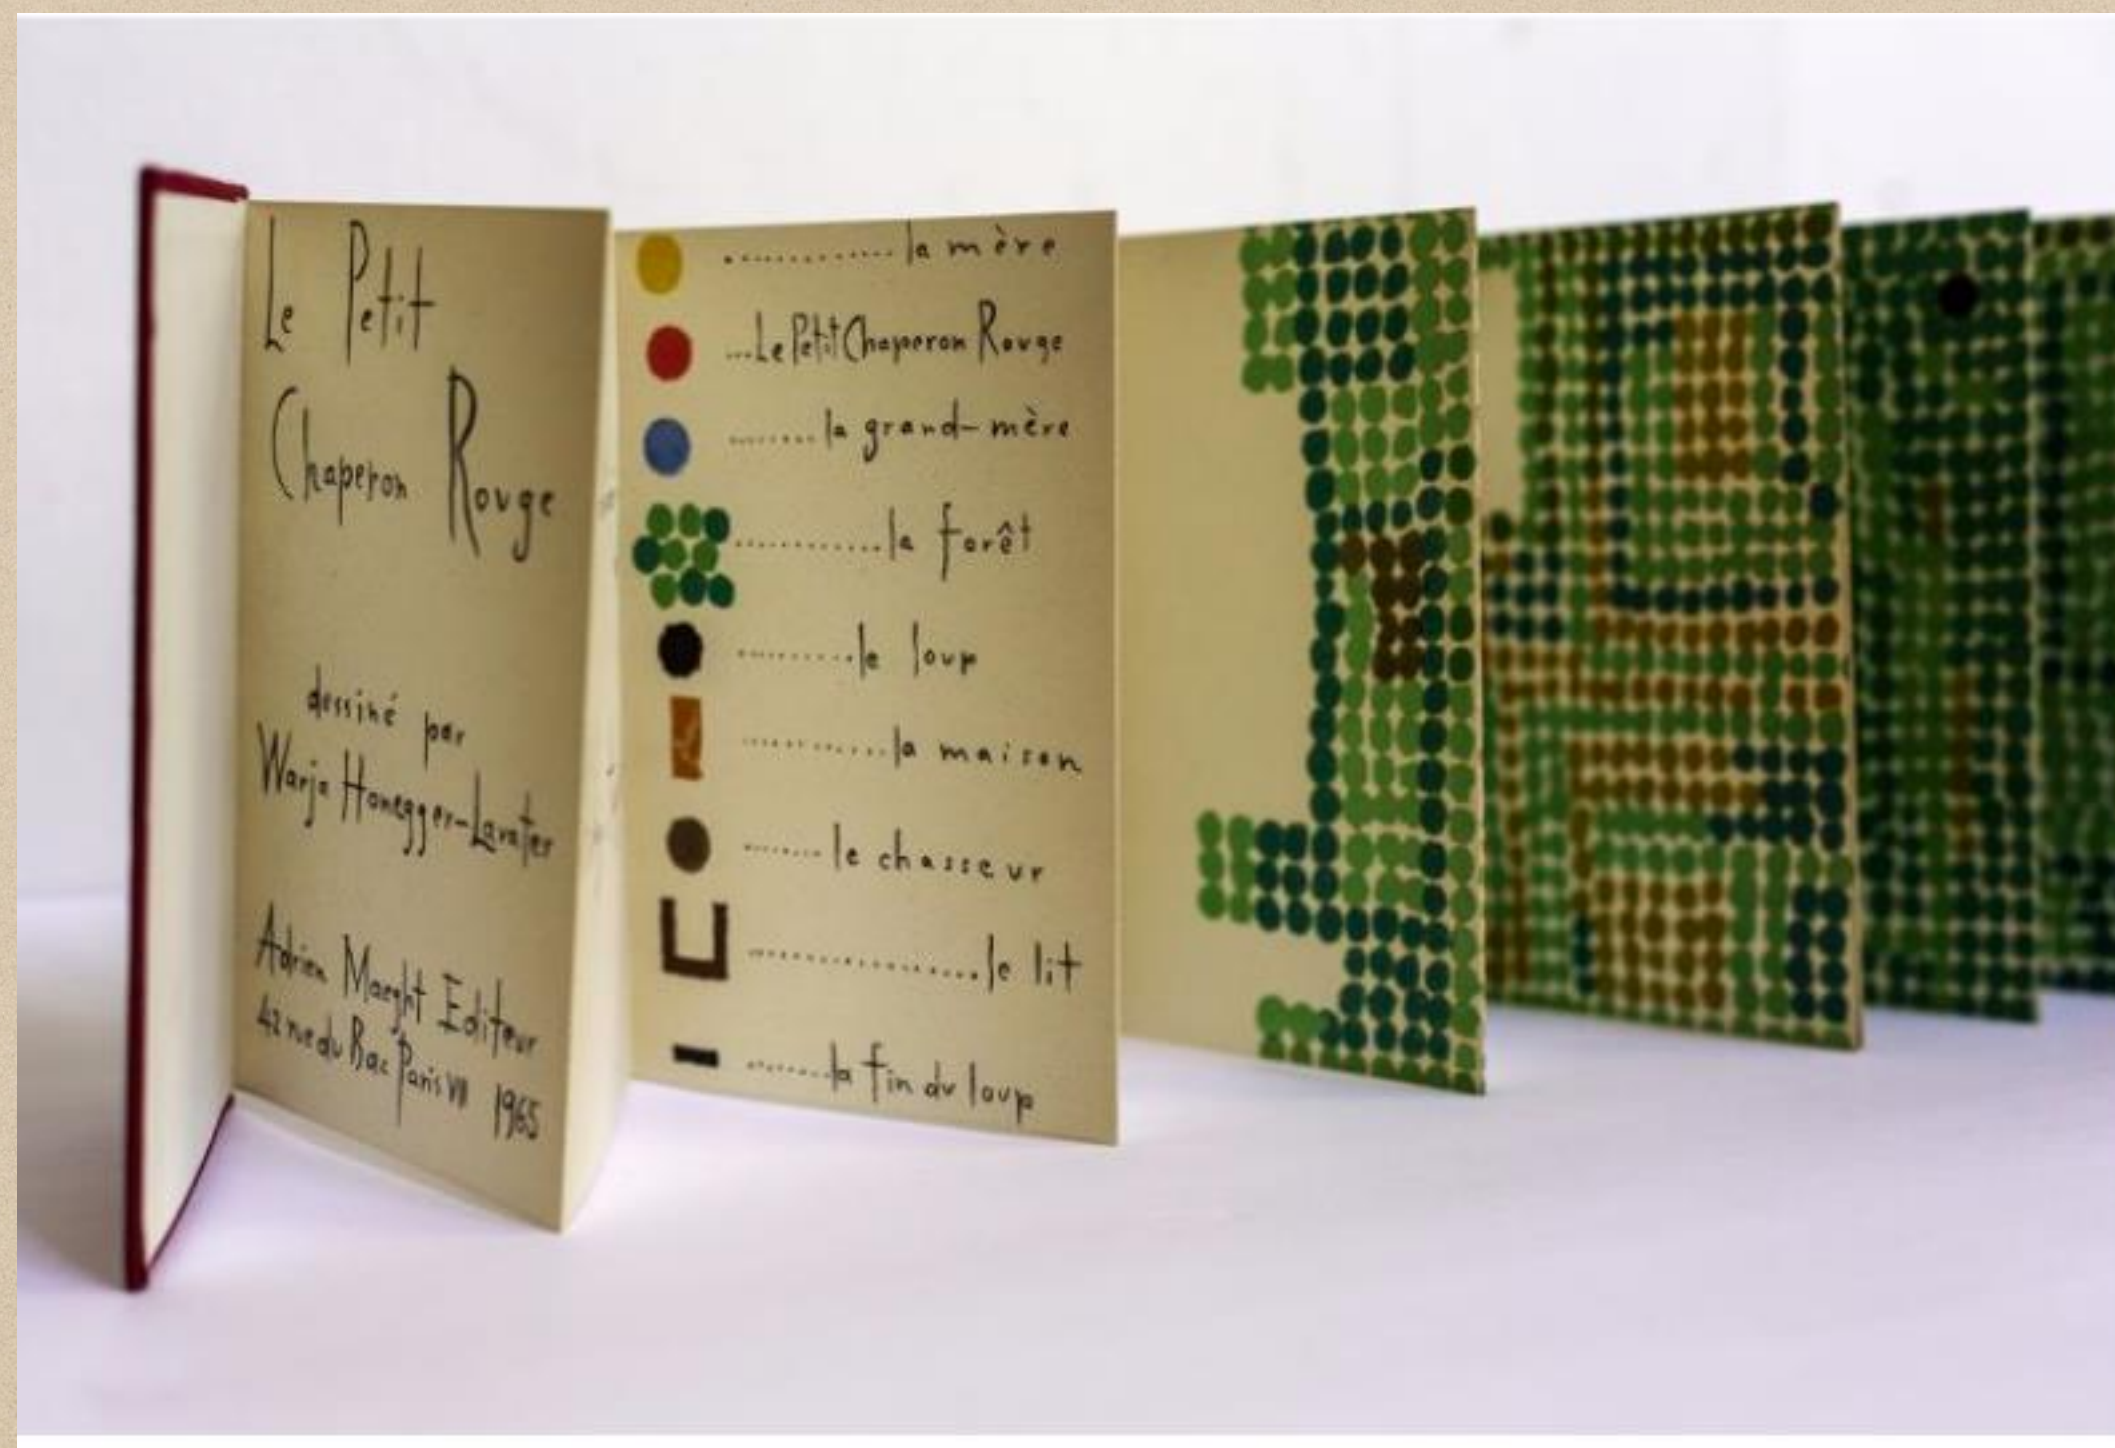 Le Petit
Chaperon Rouge
dessiné par
Warja Honegger-Lavater
Adrien Maeght Editeur
42 rue du Bac Paris VII 1965
la mère
Le Petit Chaperon Rouge
la grand-mère
la forêt
le loup
la maison
le chasseur
le lit
la fin du loup